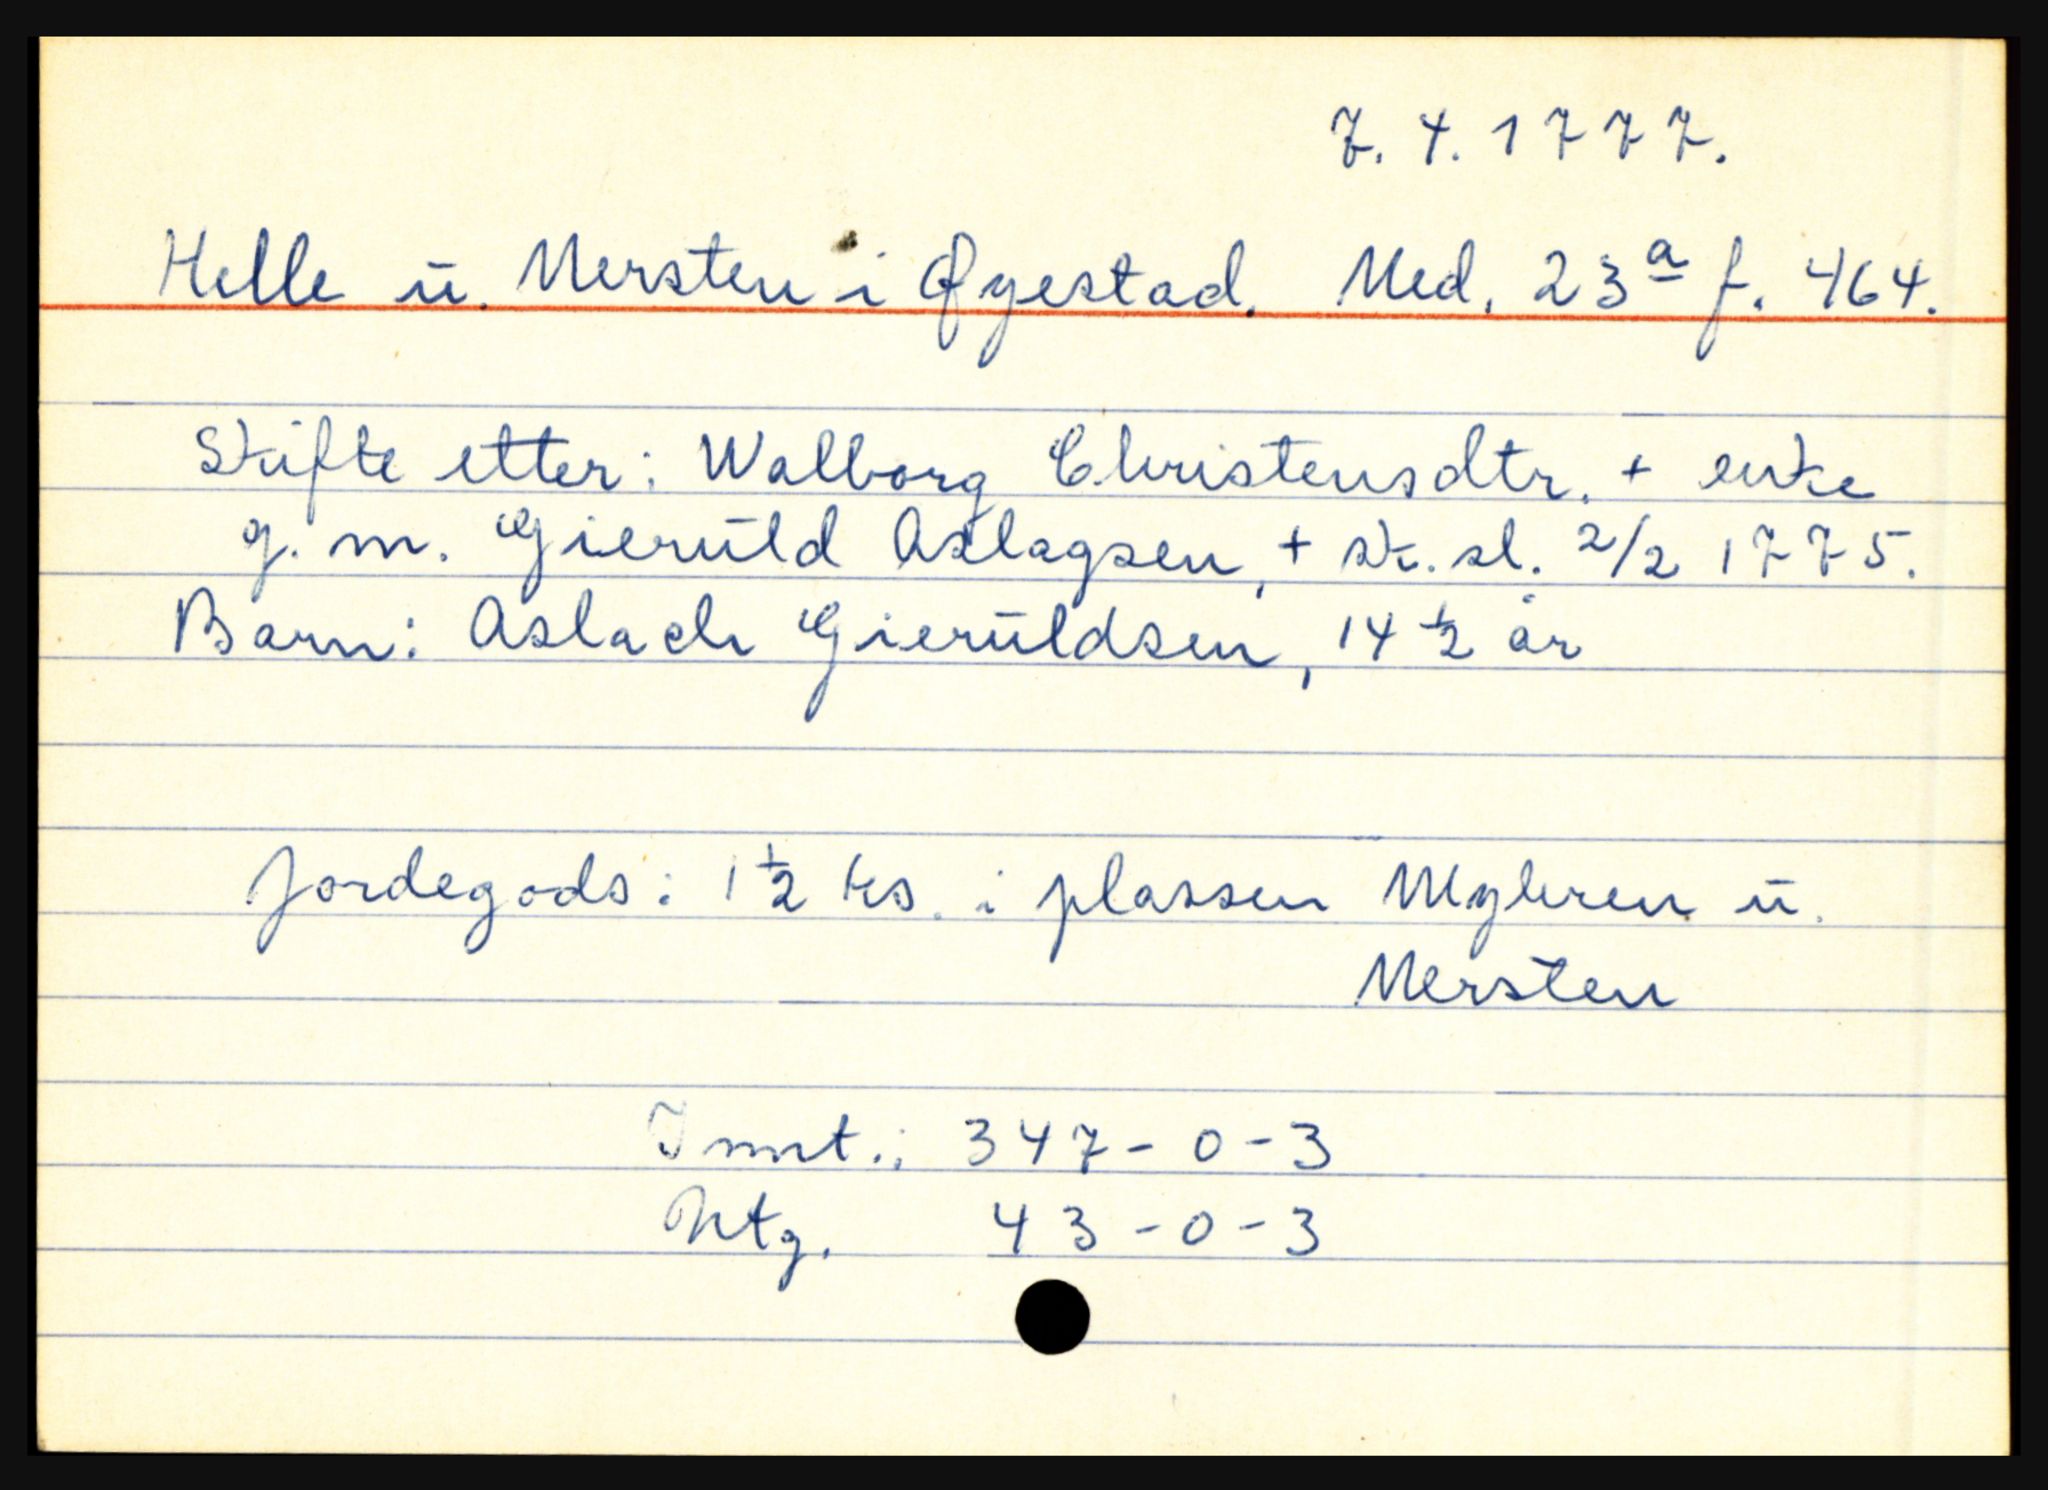 7.4.1777.
Helle ü. Nersten i Øyestad. Ned. 23a f. 464.
Skifte etter: Walborg Christensdtr. + enke
g. m. Gierüld Aslagsen, + sk. sl. 2/2 1775.
Barn: Aslach Gierüldsen, 14 1/2 år
Jordegods: 1 1/2 ks. i plassen Myhren ü.
Nersten
Innt.: 347-0-3
Utg. 43-0-3